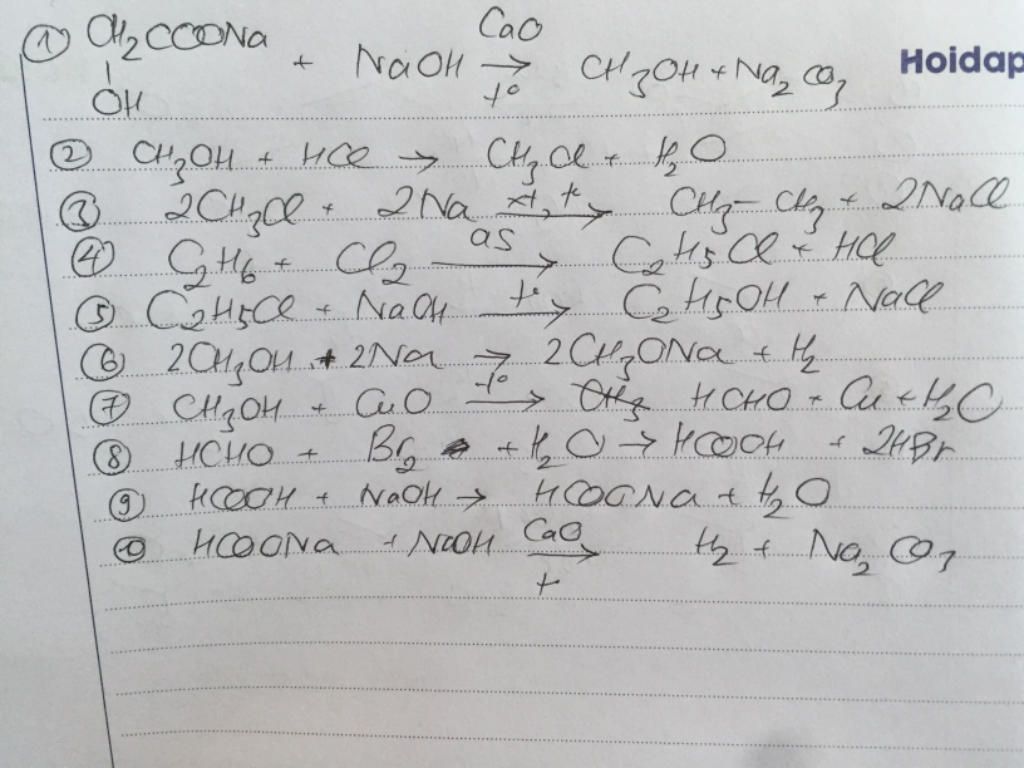 ① CH₂COONa + NaOH →(CaO, t°) CH₃OH + Na₂CO₃
OH
Hoidap
② CH₃OH + HCl → CH₃Cl + H₂O
③ 2CH₃Cl + 2Na →(xt, t°) CH₃ - CH₃ + 2NaCl
④ C₂H₆ + Cl₂ →(as) C₂H₅Cl + HCl
⑤ C₂H₅Cl + NaOH →(t°) C₂H₅OH + NaCl
⑥ 2CH₃OH + 2Na → 2CH₃ONa + H₂
⑦ CH₃OH + CuO →(t°) HCHO + Cu + H₂O
⑧ HCHO + Br₂ + H₂O → HCOOH + 2HBr
⑨ HCOOH + NaOH → HCOONa + H₂O
⑩ HCOONa + NaOH →(CaO, t) H₂ + Na₂CO₃